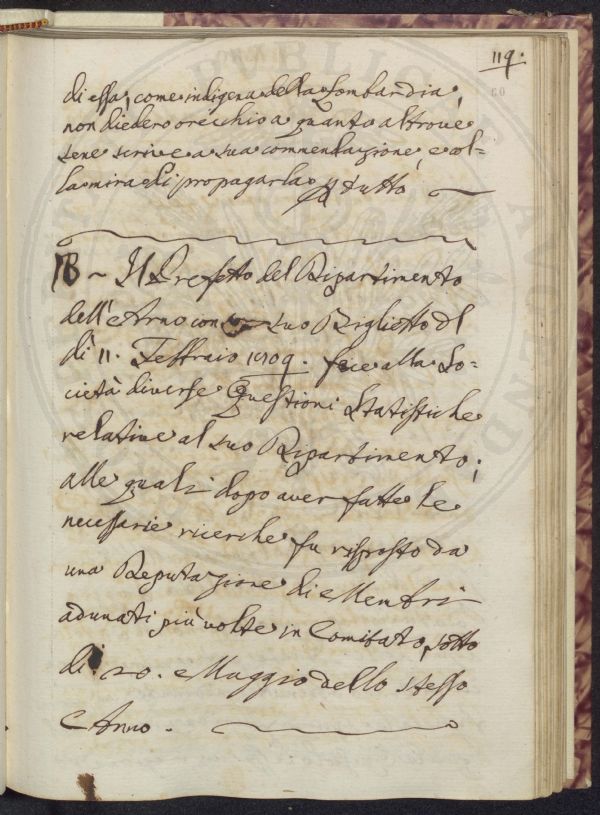 119.
di essa, come indigena della Lombardia,
non diedero orecchio a quanto altrove
sene scrive a sua commendazione, e al-
la mira di propagarla p tutto
NB ~ Il Prefetto del Dipartimento
dell'Arno con suo Biglietto dl
dì 11. Febbraio 1809. fece alla So=
cietà diverse Questioni Statistiche
relative al suo Dipartimento;
alle quali dopo aver fatte le
necessarie ricerche fu risposto da
una Deputazione di Membri
adunati più volte in Comitato, sotto
dì 20. Maggio dello stesso
Anno.